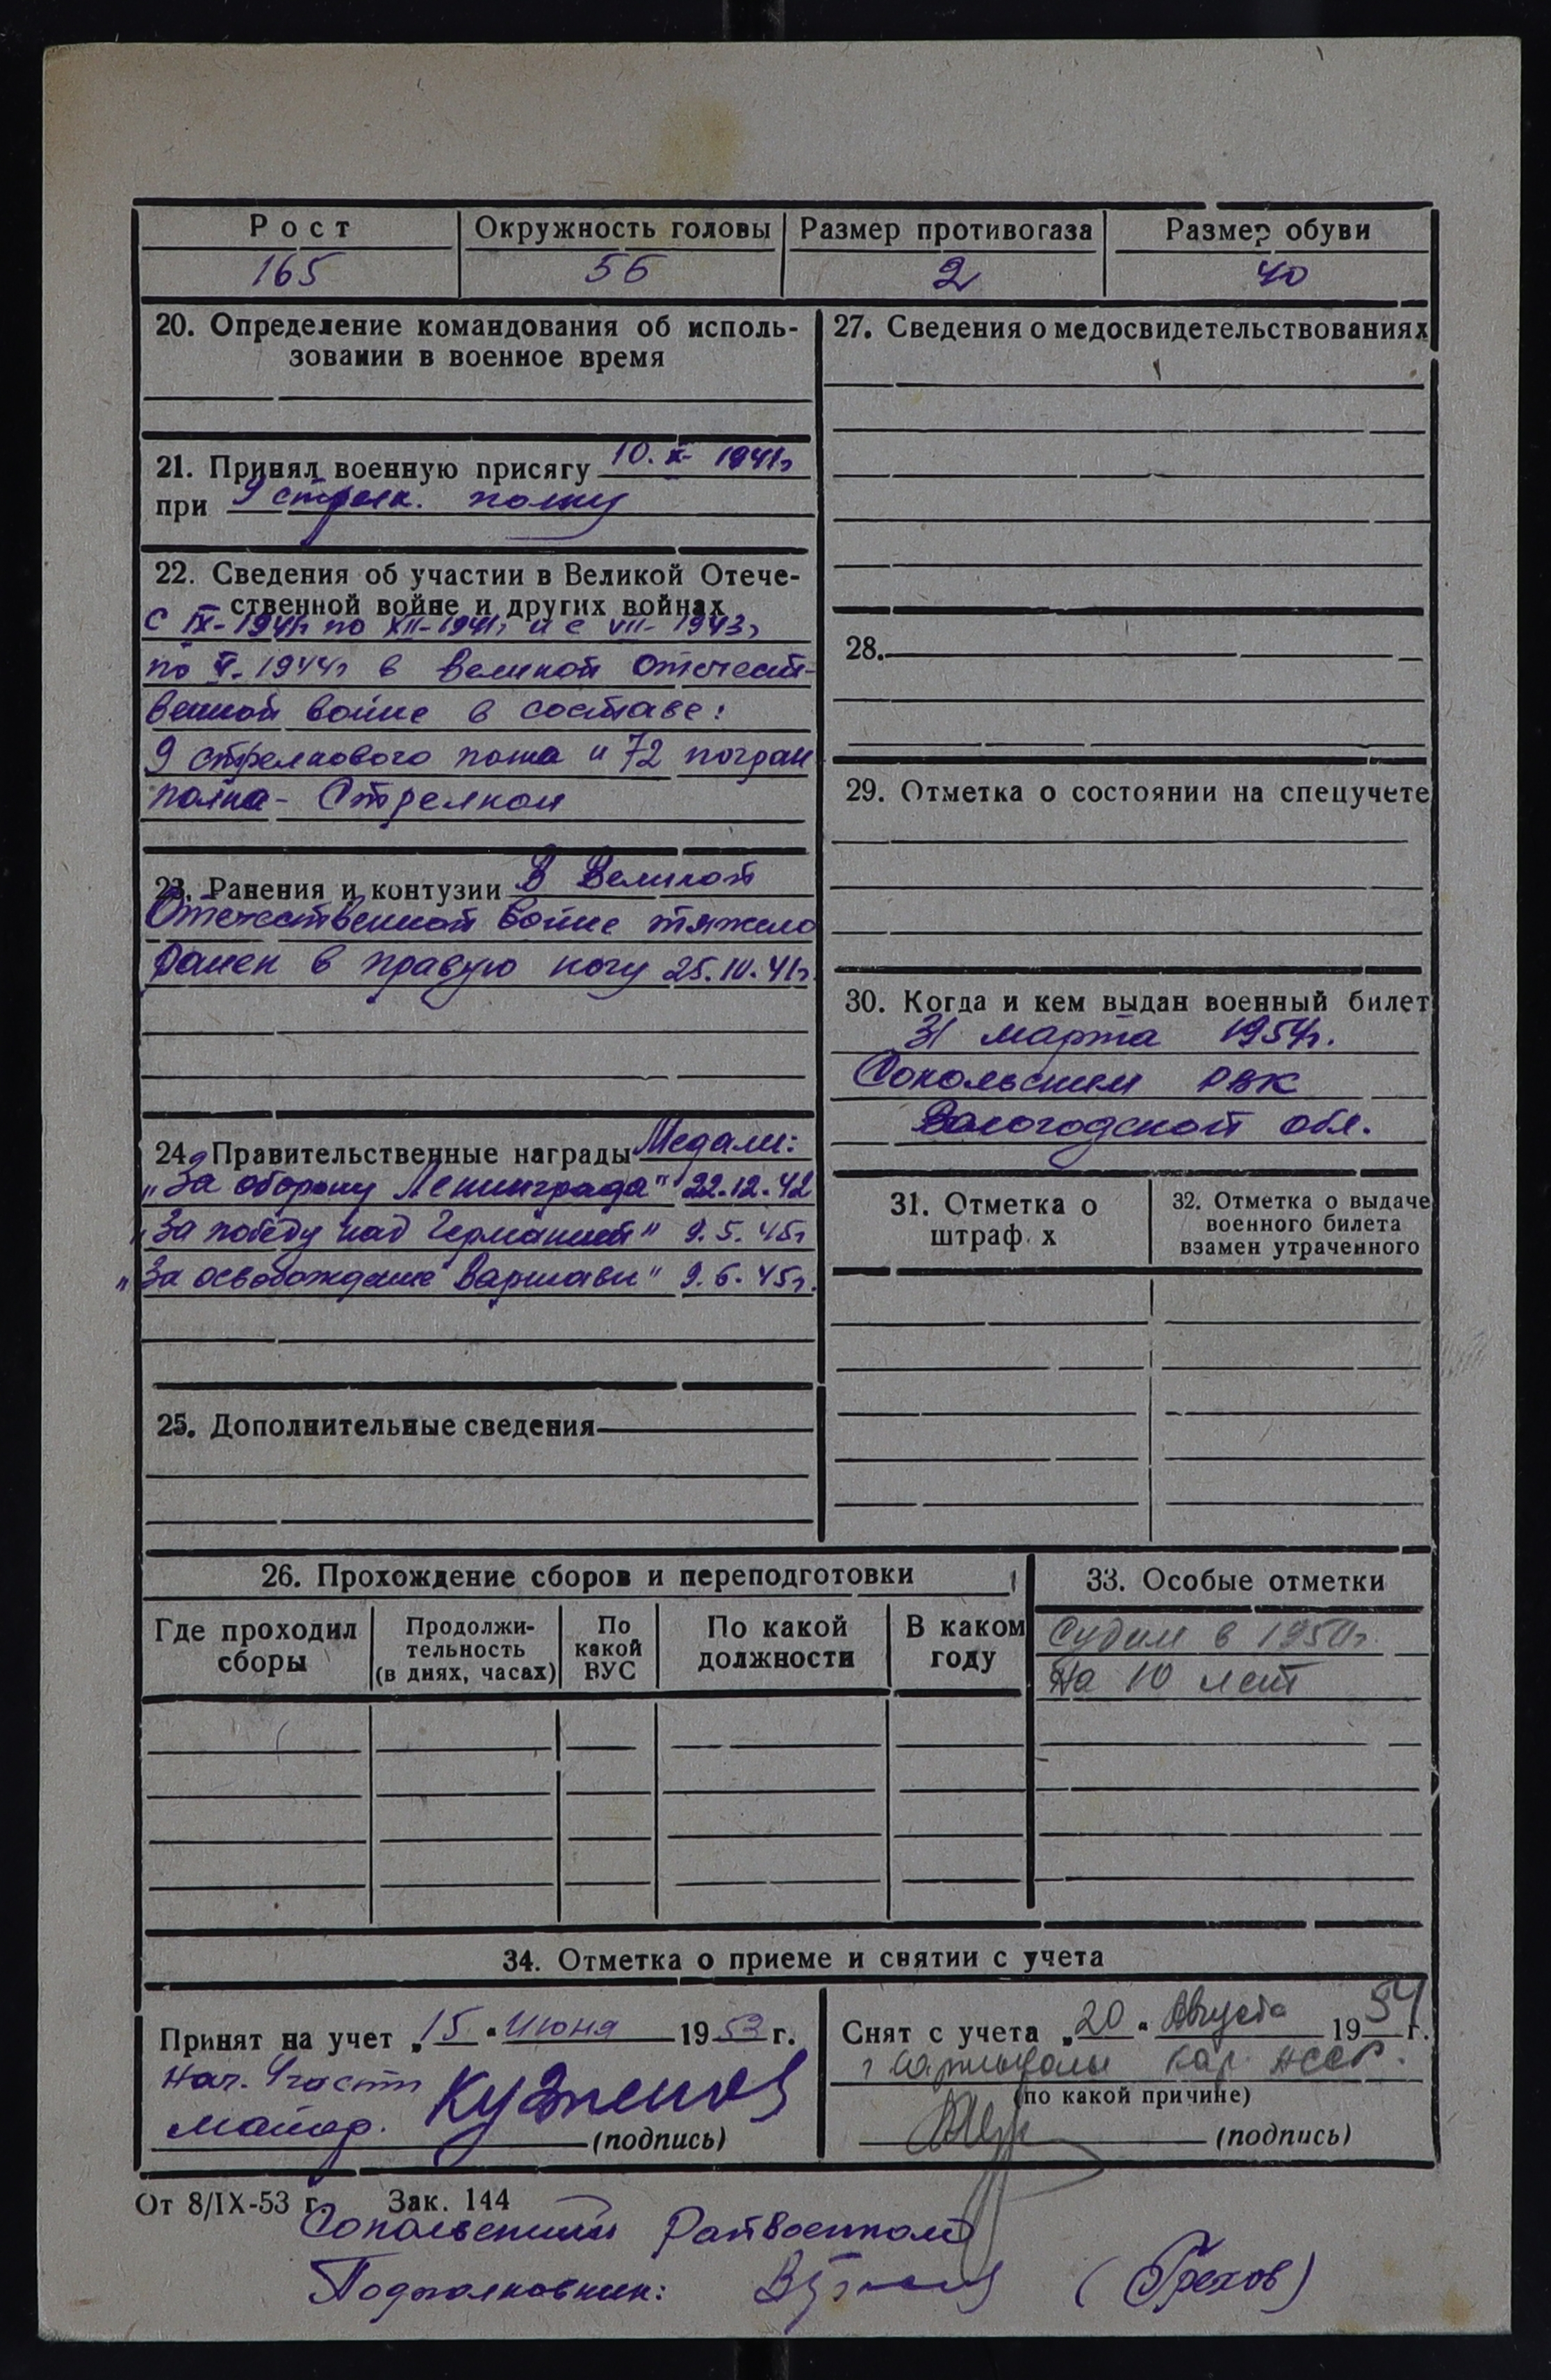 Рост Окружность головы Размер противогаза Размер обуви
165 56 2 40
20. Определение командования об исполь-
зовании в военное время
21. Принял военную присягу 10. X- 1941г
при 9 стрелк. полку
22. Сведения об участии в Великой Отече-
ственной войне и других войнах
С IX-1941г по XII-1941г и с VII-1943г
по V-1944г в Великой Отечест-
венной войне в составе:
9 стрелкового полка и 72 погран
полка - Стрелком
23. Ранения и контузии В Великой
Отечественной войне тяжело
ранен в правую ногу 25.10.41г.
24. Правительственные награды Медали:
„За оборону Ленинграда" 22.12.42
„За победу над Германией" 9.5.45г
„За освобождение Варшавы" 9.6.45г.
25. Дополнительные сведения
27. Сведения о медосвидетельствованиях
28.
29. Отметка о состоянии на спецучете
30. Когда и кем выдан военный билет
31 марта 1954г.
Сокольским РВК
Вологодской обл.
31. Отметка о
штраф х
32. Отметка о выдаче
военного билета
взамен утраченного
26. Прохождение сборов и переподготовки
Где проходил
сборы
Продолжи-
тельность
(в днях, часах)
По
какой
ВУС
По какой
должности
В каком
году
33. Особые отметки
Судим в 1950г.
на 10 лет
34. Отметка о приеме и снятии с учета
Принят на учет „15" Июня 1953 г.
Нач. 4 части
майор. Кузнецов
(подпись)
Снят с учета „20" Августа 1954 г.
г Сортавалы Кар. АССР.
(по какой причине)
(подпись)
От 8/IX-53 г. Зак. 144
Сокольский Райвоенком
Подполковник: (Грехов)